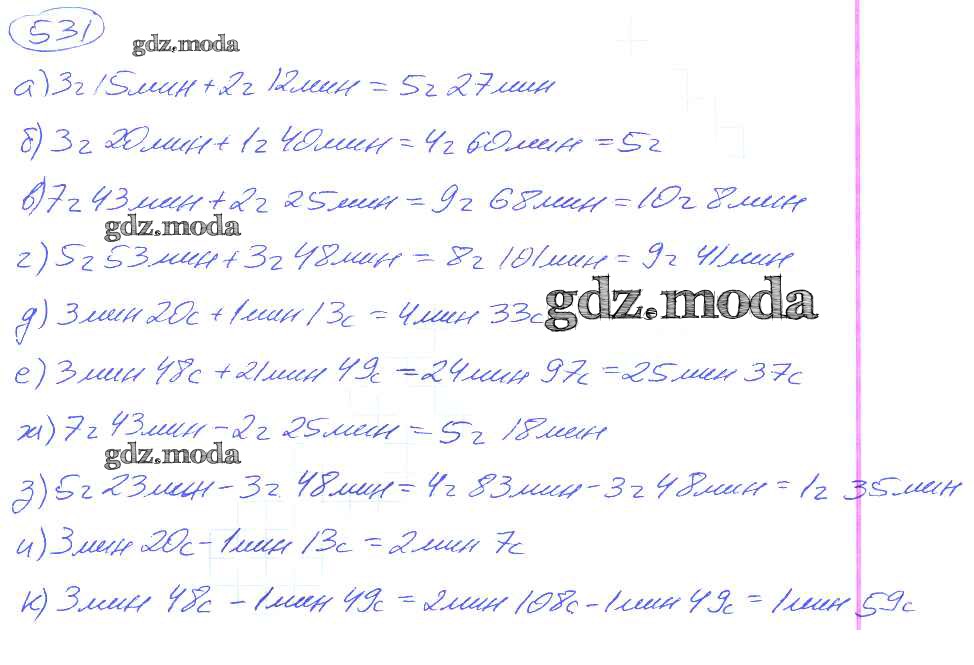 531
gdz.moda
а) 3г 15мин + 2г 12мин = 5г 27мин
б) 3г 20мин + 1г 40мин = 4г 60мин = 5г
в) 7г 43мин + 2г 25мин = 9г 68мин = 10г 8мин
gdz.moda
г) 5г 53мин + 3г 48мин = 8г 101мин = 9г 41мин
д) 3мин 20с + 1мин 13с = 4мин 33с
gdz.moda
е) 3мин 48с + 21мин 49с = 24мин 97с = 25мин 37с
ж) 7г 43мин - 2г 25мин = 5г 18мин
gdz.moda
з) 5г 23мин - 3г 48мин = 4г 83мин - 3г 48мин = 1г 35мин
и) 3мин 20с - 1мин 13с = 2мин 7с
к) 3мин 48с - 1мин 49с = 2мин 108с - 1мин 49с = 1мин 59с